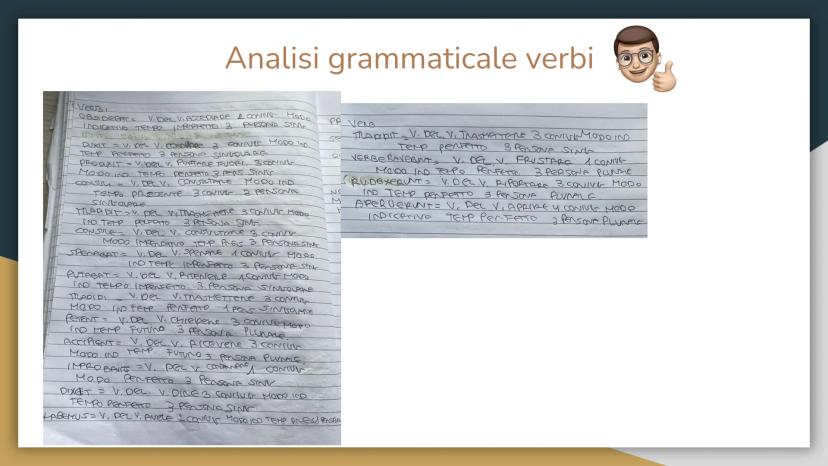 Analisi grammaticale verbi
VERBI
OBSIDEBAT = V. DEL V. ASSEDIARE 2 CONIUG MODO
INDICATIVO TEMPO IMPERFETTO 3 PERSONA SING
DUXIT = V. DEL V. 3 CONIUG MODO IND
TEMPO PERFETTO 3 PERSONA SINGOLARE
V. DEL V. PORTARE FUORI, 3 CONIUG
MODO IND TEMPO PERFETTO 3 PERS SING
V. DEL V. CONSULTARE MODO IND
TEMPO PRESENTE 3 CONIUG 3 PERSONA
SINGOLARE
TRADIDIT = V. DEL V. TRASMETTERE 3 CONIUG MODO
IND TEMPO PERFETTO 3 PERSONA SING
CONSULE = V. DEL V. CONSULTARE 3 CONIUG
MODO IMPERATIVO TEMP PRES 3 PERSONA SING
SPERABAT = V. DEL V. SPERARE 1 CONIUG MODO
IND TEMP IMPERFETTO 3 PERSONA SING
PUTABAT = V. DEL V. RITENERE 1 CONIUG MODO
IND TEMPO IMPERFETTO 3 PERSONA SINGOLARE
TRADIDI = V. DEL V. TRASMETTERE 3 CONIUG
MODO IND TEMP PERFETTO 1 PERS SINGOLARE
PETENT = V. DEL V. CHIEDERE 3 CONIUG MODO
IND TEMP FUTURO 3 PERSONA PLURALE
ACCIPIENT = V. DEL V. RICEVERE 3 CONIUG
MODO IND TEMP. FUTURO 3 PERSONA PLURALE
= V. DEL V. 1 CONIUG
MODO PERFETTO 3 PERSONA SING
DIXIT = V. DEL V. DIRE 3 CONIUG MODO IND
TEMPO PERFETTO 3 PERSONA SING
HABEMUS = V. DEL V. AVERE 2 CONIUG MODO IND TEMP PRES
VERBI
TRADIDIT = V. DEL V. TRASMETTERE 3 CONIUG MODO IND
TEMP PERFETTO 3 PERSONA SING
VERBERAVERUNT = V. DEL V. FRUSTARE 1 CONIUG
MODO IND TEMPO PERFETTO 3 PERSONA PLURALE
V. DEL V. RIPORTARE 3 CONIUG MODO
IND TEMP PERFETTO 3 PERSONA PLURALE
APERUERUNT = V. DEL V. APRIRE 4 CONIUG MODO
INDICATIVO TEMP PERFETTO 3 PERSONA PLURALE